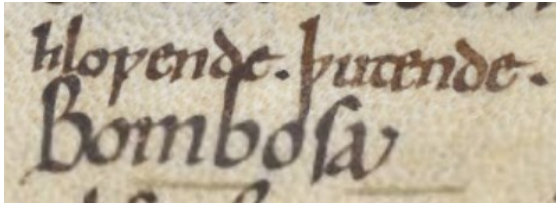 hloƿende. þutende.
Bombosa